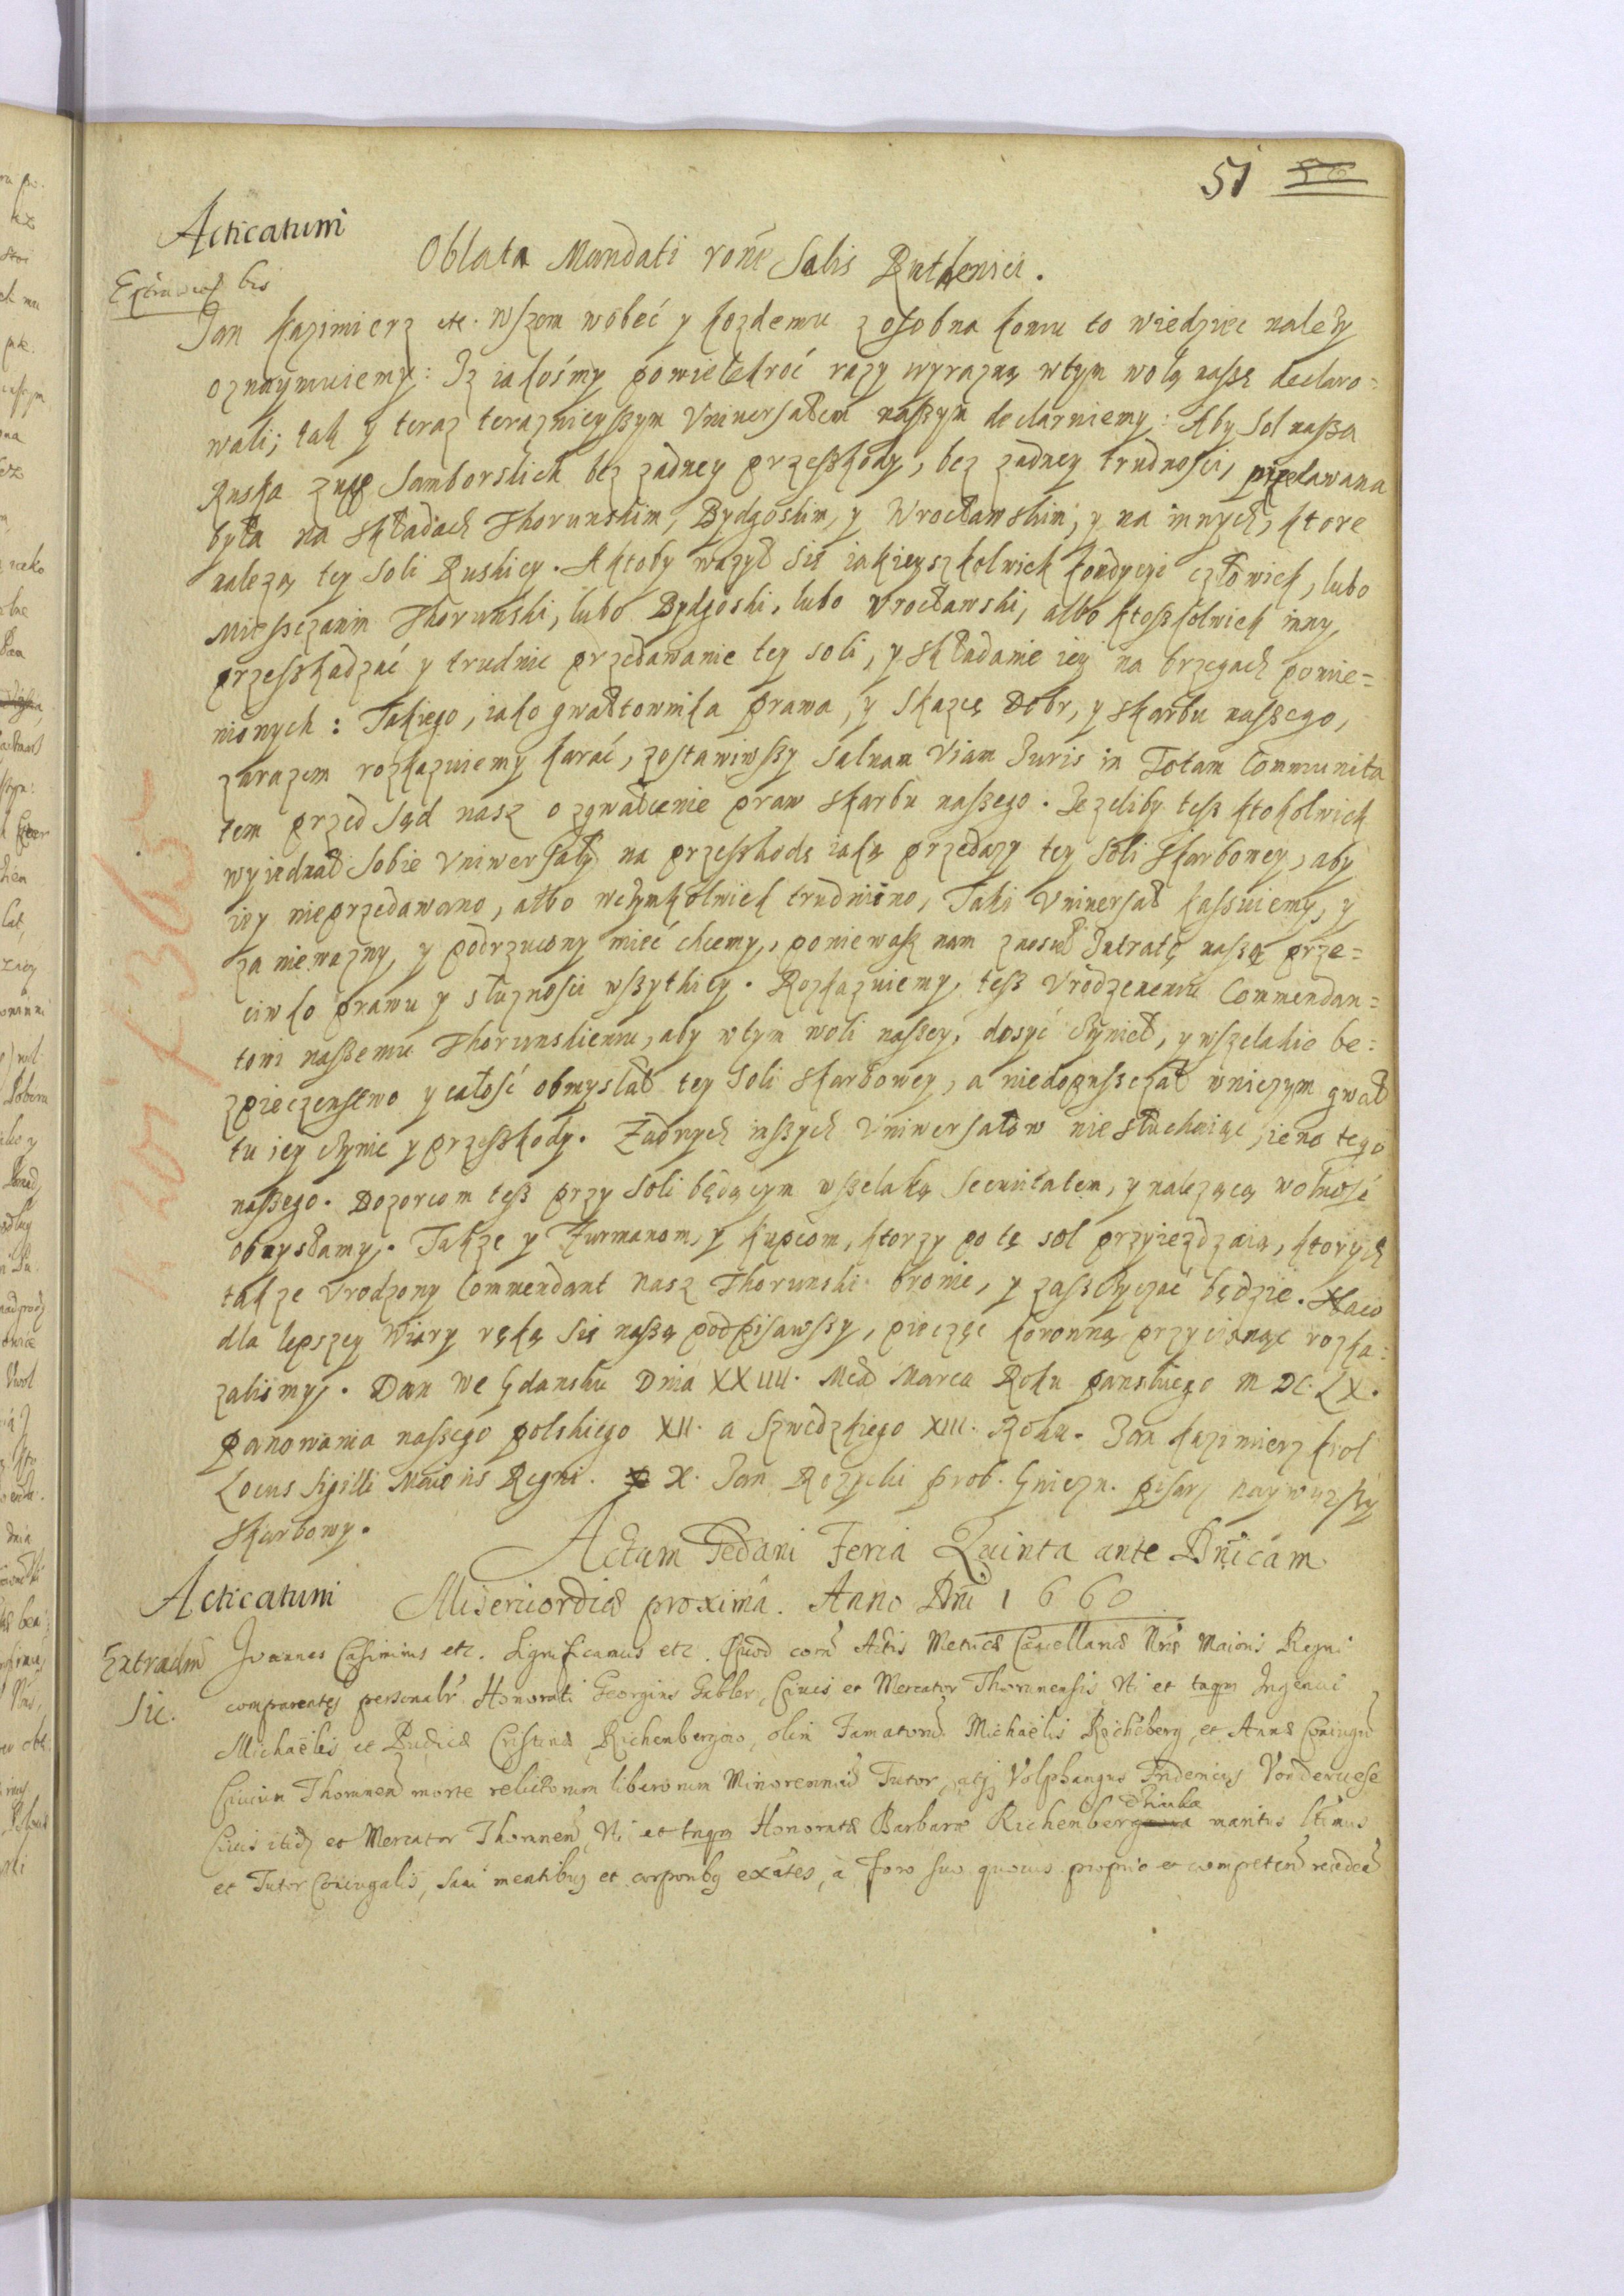 51 50
Acticatum
Oblata Mandati rone Salis Ruthenici.
Extractum bis
Jan Kazimierz etc. wszem wobeć y kożdemu z osobna komu to wiedziec należy
oznaymuiemy: Iz iakośmy powielekroć razy wyrazną wtym wolą naszę declaro=
wali; tak y teraz terazniejszym Vniuersałem naszym declaruiemy: Aby Sol nasza
Ruska zupp Samborskich bez zadney przeszkody, bez zadney trudności, przedawana
była na składach Thorunskim, Bydgoskim, y Wrocławskim, y na innych, ktore
należą tey Soli Ruskiey. A ktoby wazył sie iakieyszkolwiek kondycyi człowiek, lubo
Mieszczanin Thorunski, lubo Bydgoski, lubo Vrocławski, albo ktoszkolwiek inny,
przeszkadzać y trudnic przedawanie tey soli, y składanie iey na brzegach pomie=
nionych: Takiego, iako gwałtownika prawa, y skazcę Dobr, y skarbu naszego,
zarazem rozkazuiemy karać, zostawiwszy Saluam Viam Iuris in Totam Communita
tem przed Sąd nasz o zgwałcenie praw skarbu naszego. Jezeliby tesz ktokolwiek
wyiednał sobie Vniwersały na przeszkodę iaką przedazy tey Soli Skarbowey, aby
iey nieprzedawano, albo wczymkolwiek trudniono, Taki Vniuersał kassuiemy, y
za niewazny, y podrzucony mieć chcemy, poniewasz nam znosił Intratę naszą prze=
ciwko prawu y słuznosci wszytkiey. Rozkazuiemy, tesz Vrodzenemu Commendan=
towi naszemu Thorunskiemu, aby wtym woli naszey, dosyć czynieł, y wszelakie be=
zpieczenstwo y całość obmyslał tey Soli Skarbowey, a niedopuszczał wniczym gwał
tu iey czynic y przeszkody. Żadnych inszych Vniwersałow niesłuchaiąc, ieno tego
naszego. Dozorcom tesz przy Soli będącym wszelaką Securitatem, y nalezącą wolność
obmyslamy. Takze y Furmanom, y kupcom, ktorzy po tę sol przyiezdzaią, ktorych
takze Vrodzony Commendant Nasz Thorunski bronic, y zaszczyczać będzie. Naco
dla lepszey Wiary ręką się naszą podpisawszy, pieczęc koronną przycisnąc rozka=
zalismy. Dan We Gdansku Dnia XXIIII. Mca Marca Roku panskiego MDCLX.
panowania naszego polskiego XII. a Szwedzkiego XIII. Roku. Jan Kazimierz Krol
Locus Sigilli Maioris Regni. X. Jan Rozycki prob. Gniezn. pisarz naywyzszy
Skarbowy.
Actum Gedani Feria Quinta ante Dnicam
Acticatum
Misericordiae proxima. Anno Dni 1660
Extradm
Sic.
Joannes Casimirus etc. Significamus etc. Quod coram Actis Metrices Cancellariae Nrae Maioris Regni
comparentes personalr Honorati Georgius Gabler, Ciuis et Mercator Thorunensis, Vti et tnqm Ingenui
Michaëlis et Pudicae Cristinae Richenbergero, olim Famatorum Michaëlis Richeberg, et Annae Coniugum
Ciuium Thorunen morte relictorum liberorum Minorennium Tutor, atq Volphangus Fridericus Vonderuese
Ciuis itidem et Mercator Thorunen, Vti et tnqm Honoratae Barbarae Richenbergowa maritus ltimus
et Tutor Coniugalis, sani mentibus et corporibus exntes, a Foro suo quouis proprio et competen receden